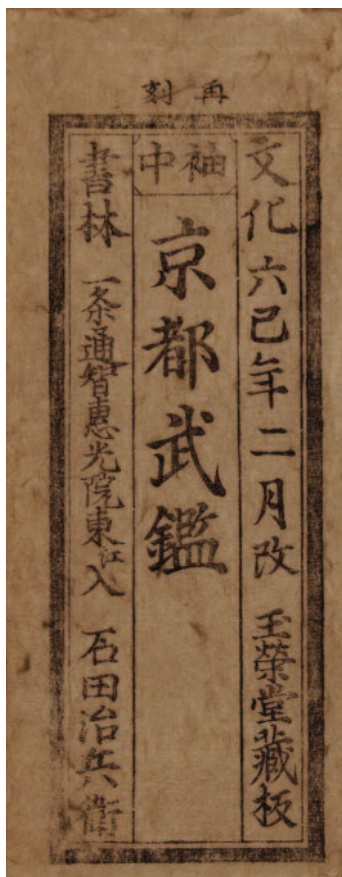 再刻
文化六巳年二月改 玉榮堂藏板
袖中
京都武鑑
書林 一条通智惠光院東江入 石田治兵衛